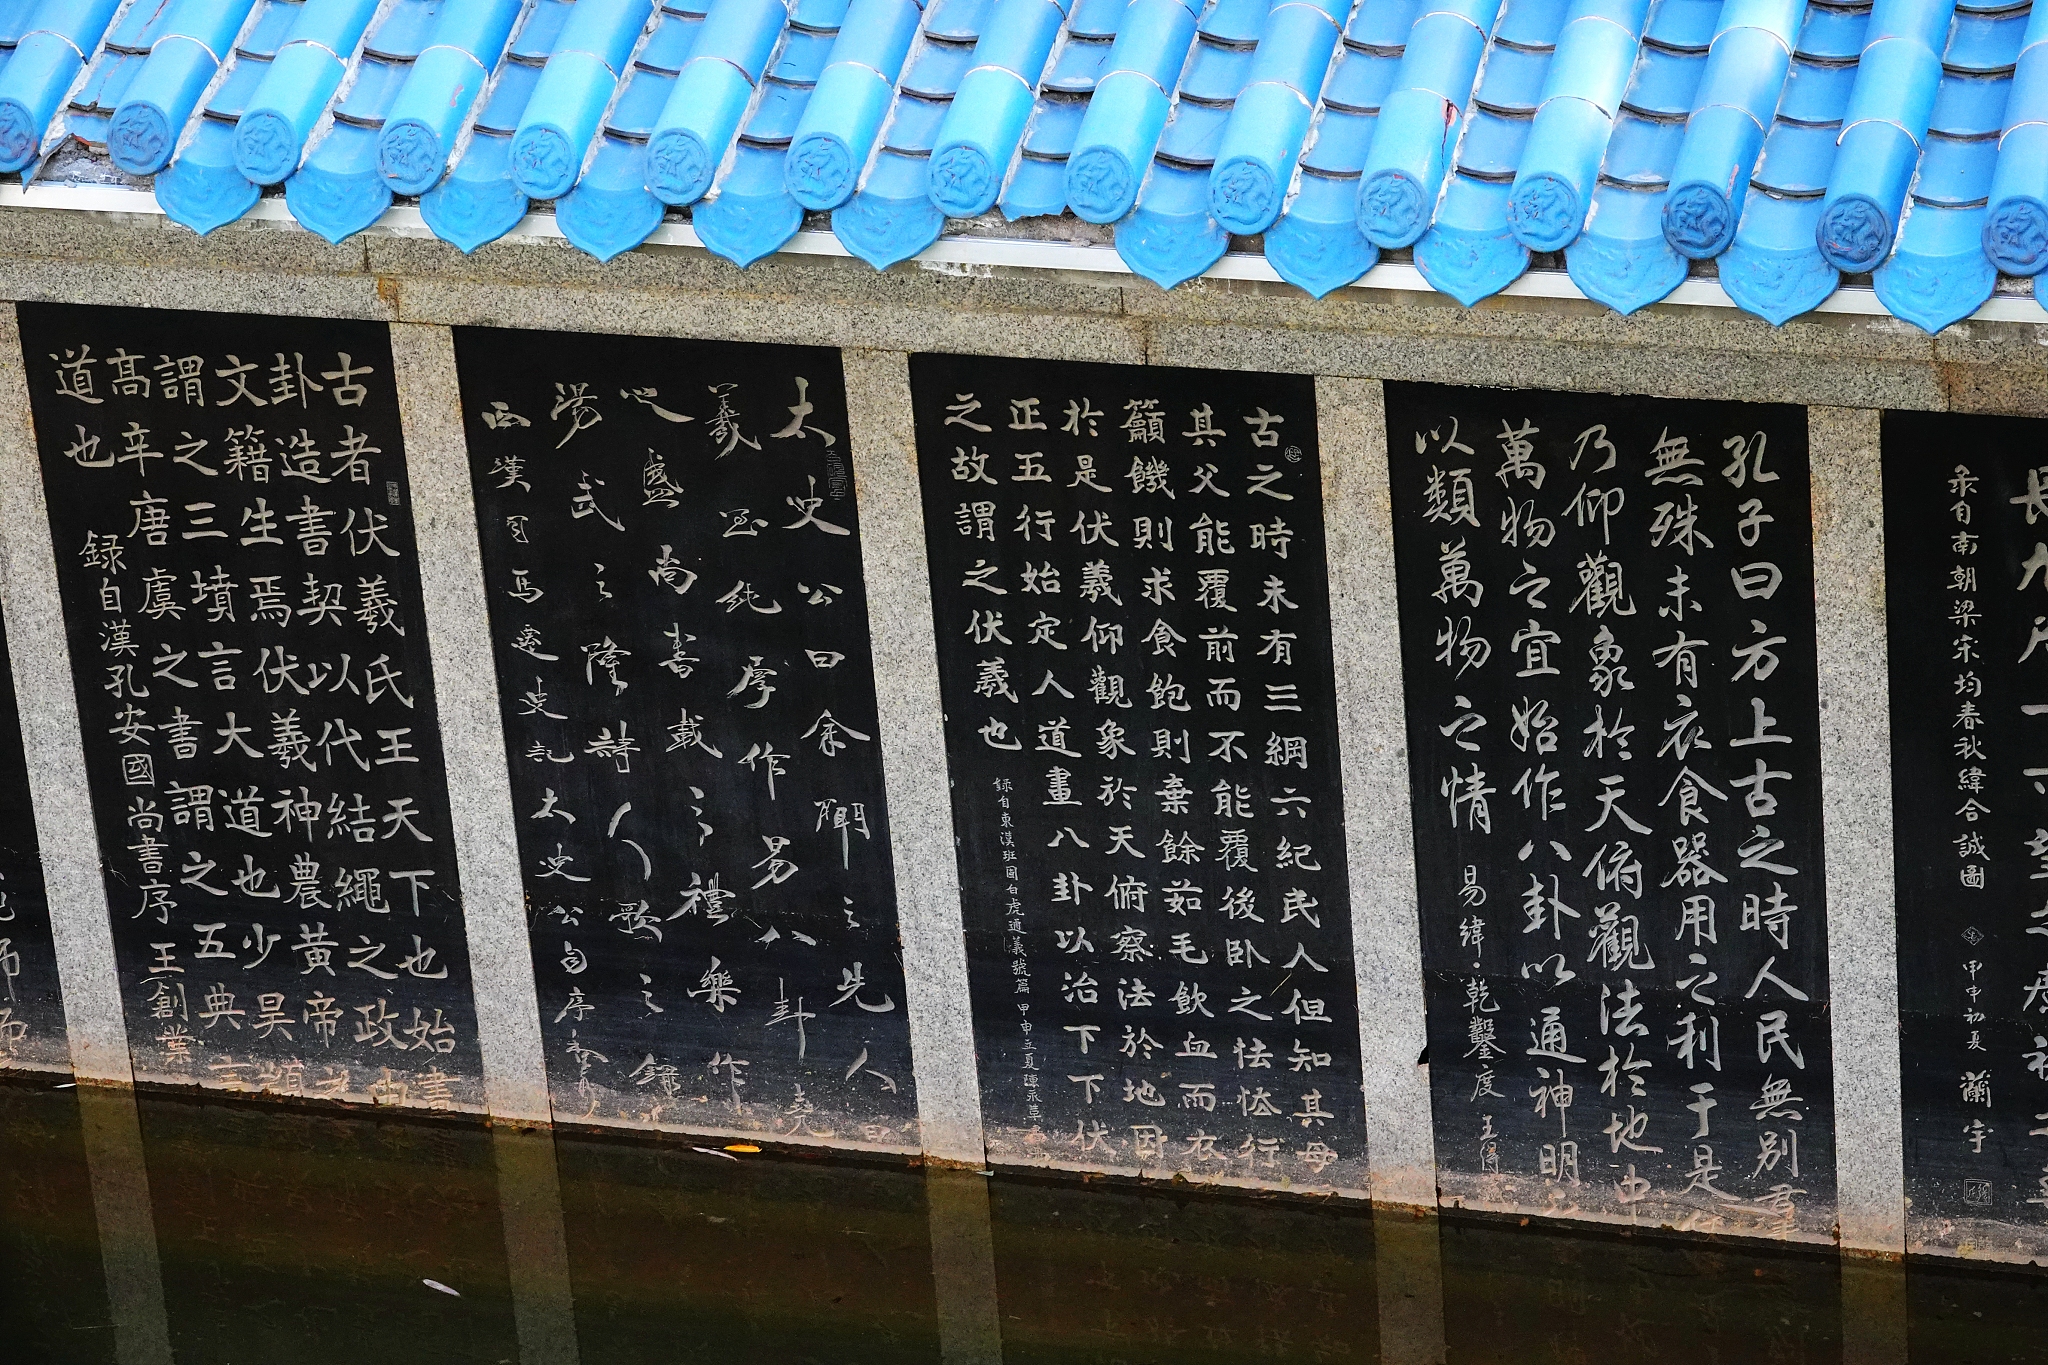 長九尺一寸望之廣視之
录自南朝梁宋均春秋緯合誠圖 甲申初夏 蘭宇
孔子曰方上古之時人民無别羣
無殊未有衣食器用之利于是
乃仰觀象於天俯觀法於地中
萬物之宜始作八卦以通神明之
以類萬物之情 易緯·乾鑿度 王得
古之時未有三綱六紀民人但知其母
其父能覆前而不能覆後卧之怯怯行
籲饑則求食飽則棄餘茹毛飲血而衣
於是伏羲仰觀象於天俯察法於地因
正五行始定人道畫八卦以治下下伏
之故謂之伏羲也
録自東漢班固白虎通義號篇 甲申立夏陳永草
太史公曰余聞之先人曰
羲至純厚作易八卦堯
之盛尚書載之禮樂作
湯武之隆詩人歌之錄
西漢司馬遷史記太史公自序
古者伏羲氏王天下也始畫
卦造書契以代結繩之政由
文籍生焉伏羲神農黄帝之
謂之三墳言大道也少昊顓
高辛唐虞之書謂之五典言
道也
録自漢孔安國尚書序 王創業